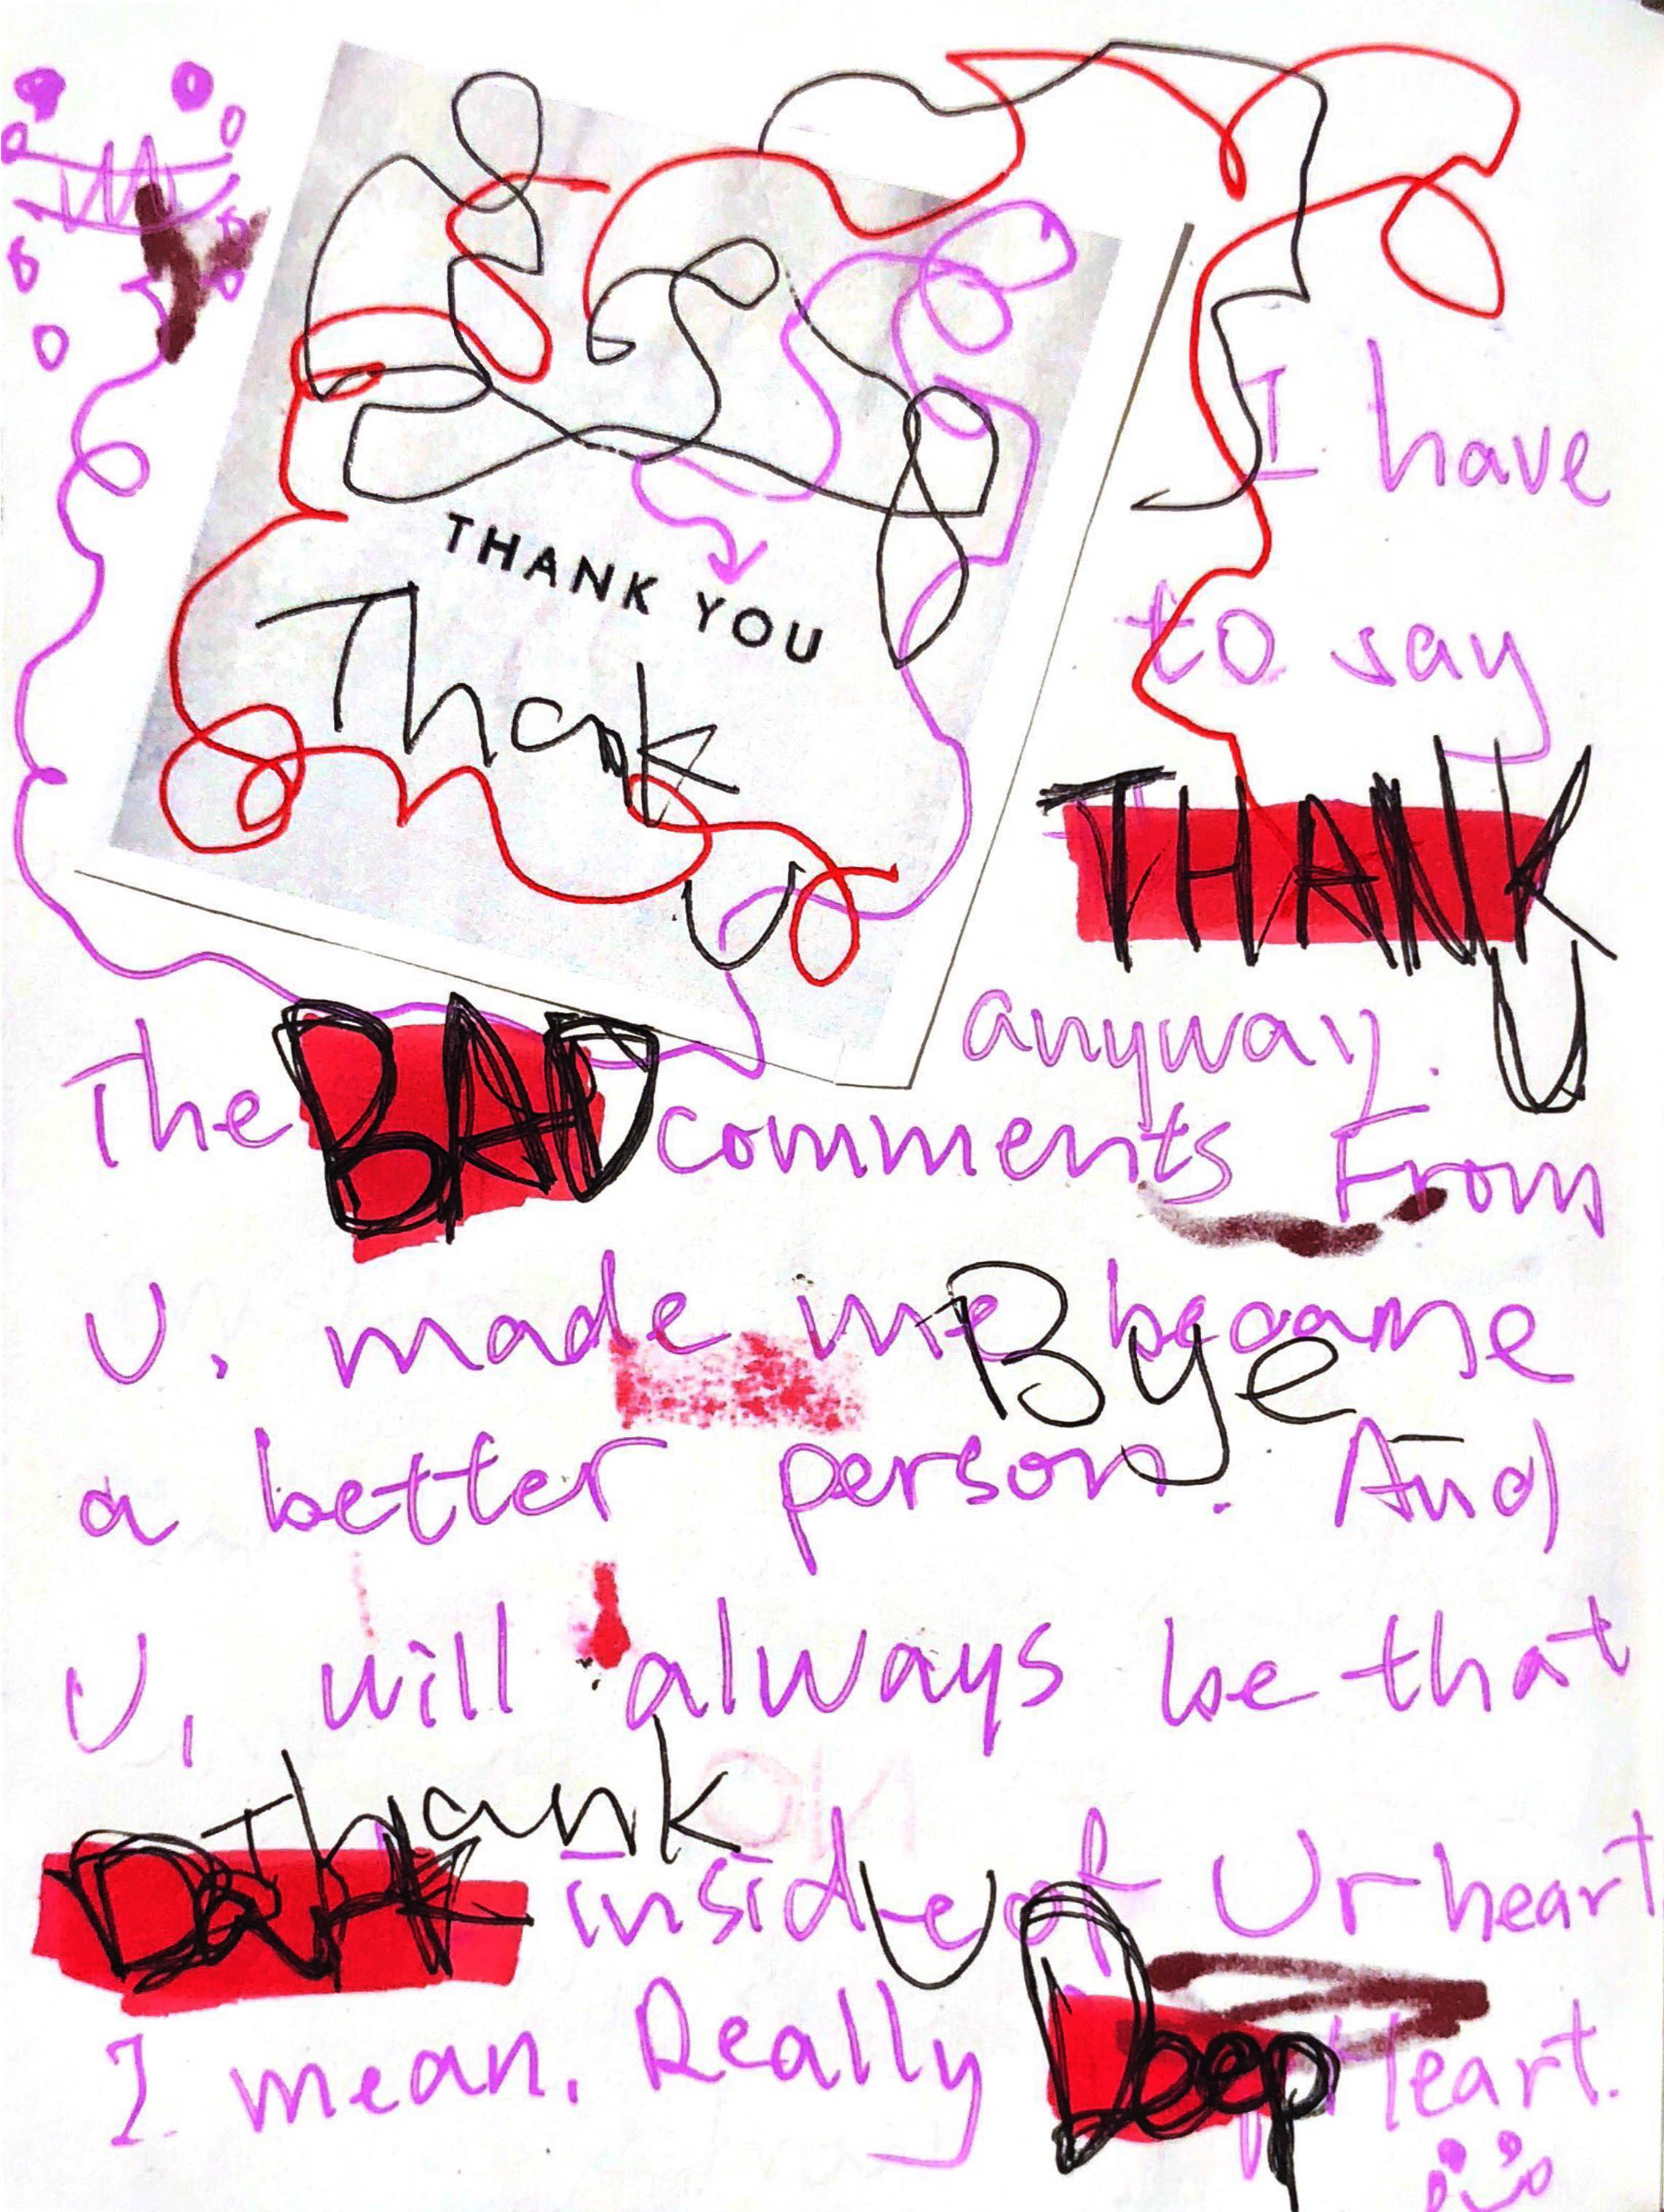 THANK YOU
Thank
U
I have
to say
THANK
U
anyway.
The BAD comments From
U, made me became
Bye
a better person. And
U, will always be that
Thank
U
Dark inside of Ur heart
I mean. Really Deep Heart.